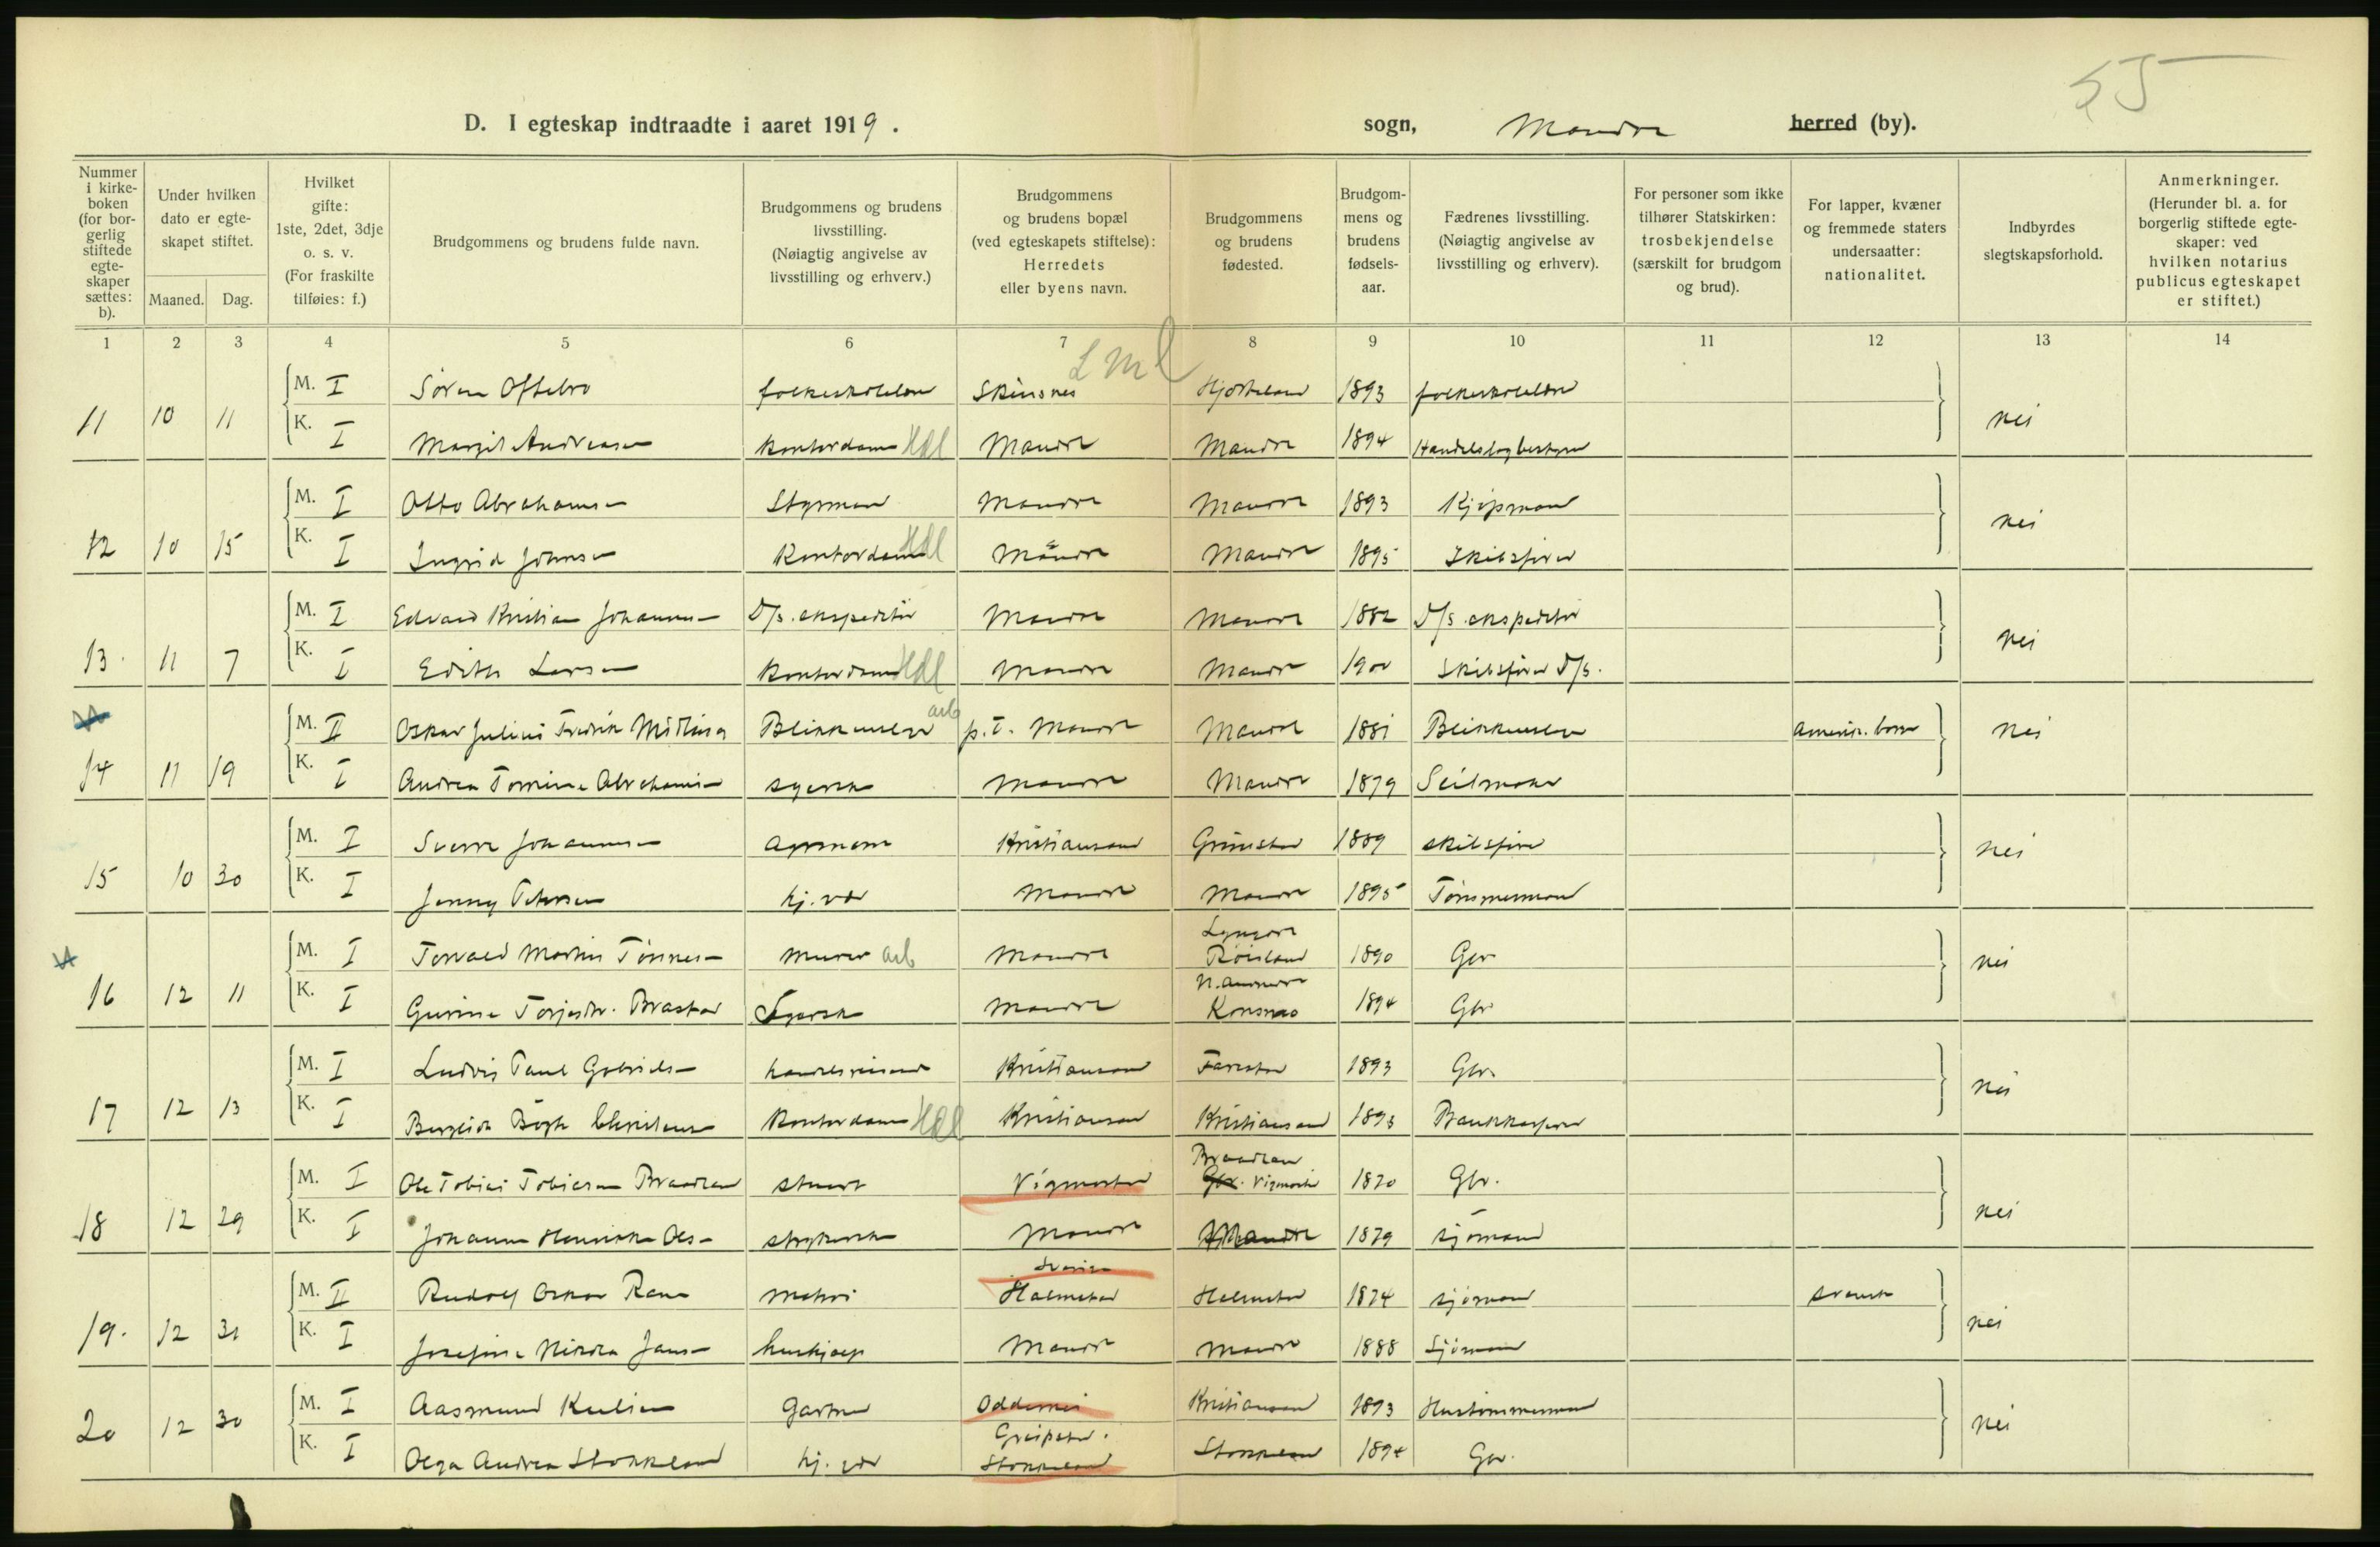 55
D. I egteskap indtraadte i aaret 1919.
sogn, Mandal herred (by).
Nummer i kirkeboken (for borgerlig stiftede egteskaper sættes: b).
Under hvilken dato er egteskapet stiftet.
Maaned. Dag.
Hvilket gifte: 1ste, 2det, 3dje o. s. v. (For fraskilte tilføies: f.)
Brudgommens og brudens fulde navn.
Brudgommens og brudens livsstilling. (Nøiagtig angivelse av livsstilling og erhverv.)
Brudgommens og brudens bopæl (ved egteskapets stiftelse): Herredets eller byens navn.
Brudgommens og brudens fødested.
Brudgommens og brudens fødselsaar.
Fædrenes livsstilling. (Nøiagtig angivelse av livsstilling og erhverv).
For personer som ikke tilhører Statskirken: trosbekjendelse (særskilt for brudgom og brud).
For lapper, kvæner og fremmede staters undersaatter: nationalitet.
Indbyrdes slegtskapsforhold.
Anmerkninger. (Herunder bl. a. for borgerlig stiftede egteskaper: ved hvilken notarius publicus egteskapet er stiftet.)
1 2 3 4 5 6 7 8 9 10 11 12 13 14
11 10 11 M. I Søren Oftebro folkeskolelærer 1893 folkeskolelærer nei
K. I Margit Andreasen kontordame Hdl Mandal Mandal 1894 Handelslagbestyrer
12 10 15 M. I Otto Abrahamsen Styrmand Mandal Mandal 1893 Kjøpmand nei
K. I Ingrid Johnsen Kontordame Hdl Mandal Mandal 1895 Skibsfører
13 11 7 M. I Edvard Kristian Johannesen D/s. ekspeditør Mandal Mandal 1882 D/s. ekspeditør nei
K. I Edith Larsen kontordame Hdl Mandal Mandal 1900 Skibsfører D/s.
14 11 19 M. II Oskar Julius Fredrik Blikkenslager arb p.t. Mandal Mandal 1881 Blikkenslager amerik. borger nei
K. I Andrea Tomine Abrahamsen syerske Mandal Mandal 1879 Seilmaker
15 10 30 M. I Sverre Johannesen Kristiansand Grimstad 1889 skibsfører nei
K. I Jenny Petersen hj. vær Mandal Mandal 1895 Tømmermand
16 12 11 M. I Torvald Martin Tønnesen murer arb Mandal Lyngdal Røisland 1890 Gbr nei
K. I Gurine Torjesdtr. Brastad Syerske Mandal 1894 Gbr
17 12 13 M. I Ludvig Paul Gabrielsen handelsreisende Kristiansand Farestad 1893 Gbr. nei
K. I Bergliot Christensen Kontordame Hdl Kristiansand Kristiansand 1893 Bankkasserer
18 12 29 M. I Ole Tobias Tobiassen Braadland stuert Vigmostad Braadland Gbr. Vigmostad 1870 Gbr. nei
K. I Johanne Henrikke Olsen strykerske Mandal Mandal 1879 sjömand
19. 12 31 M. II Rudolf Oskar Sverige Halmstad Halmstad 1874 sjömand svensk nei
K. I Josefine Jansen hushjælp Mandal Mandal 1888 Sjömand
20 12 30 M. I Aasmund Gartner Oddernes Kristiansand 1893 Hustømmermand nei
K. I Olga Andrea Stokkeland hj. vær Greipstad. Stokkeland Stokkeland 1894 Gbr.